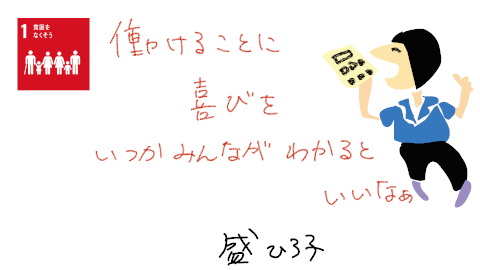 1 貧困を
なくそう
働けることに
喜びを
いつかみんながわかると
いいなぁ
盛ひろ子